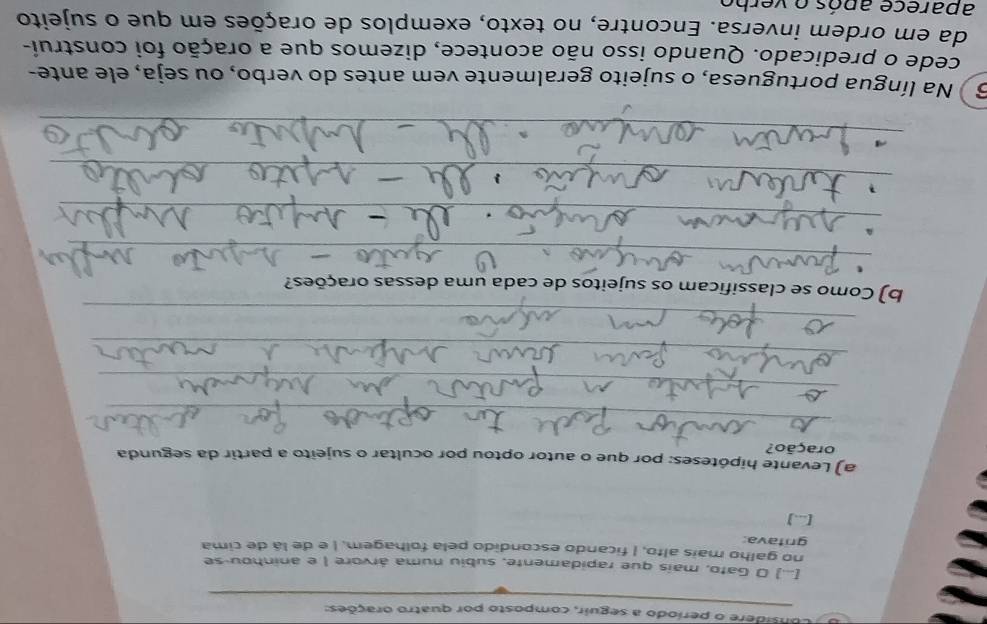 Considere o período a seguir, composto por quatro orações:
[...] O Gato, mais que rapidamente, subiu numa árvore | e aninhou-se
no galho mais alto, | ficando escondido pela folhagem, | e de lá de cima
gritava:
[...]
a) Levante hipóteses: por que o autor optou por ocultar o sujeito a partir da segunda
oração?
o autor pode ter optado por ocultar
o sujeito a partir da segunda
oração para
o fato
b) Como se classificam os sujeitos de cada uma dessas orações?
• Primeira oração: O gato - sujeito simples
• segunda oração: Ele - sujeito
• terceira oração: Ele - sujeito oculto
• oração: Ele - sujeito oculto
6) Na língua portuguesa, o sujeito geralmente vem antes do verbo, ou seja, ele ante-
cede o predicado. Quando isso não acontece, dizemos que a oração foi construí-
da em ordem inversa. Encontre, no texto, exemplos de orações em que o sujeito
aparece após o verbo